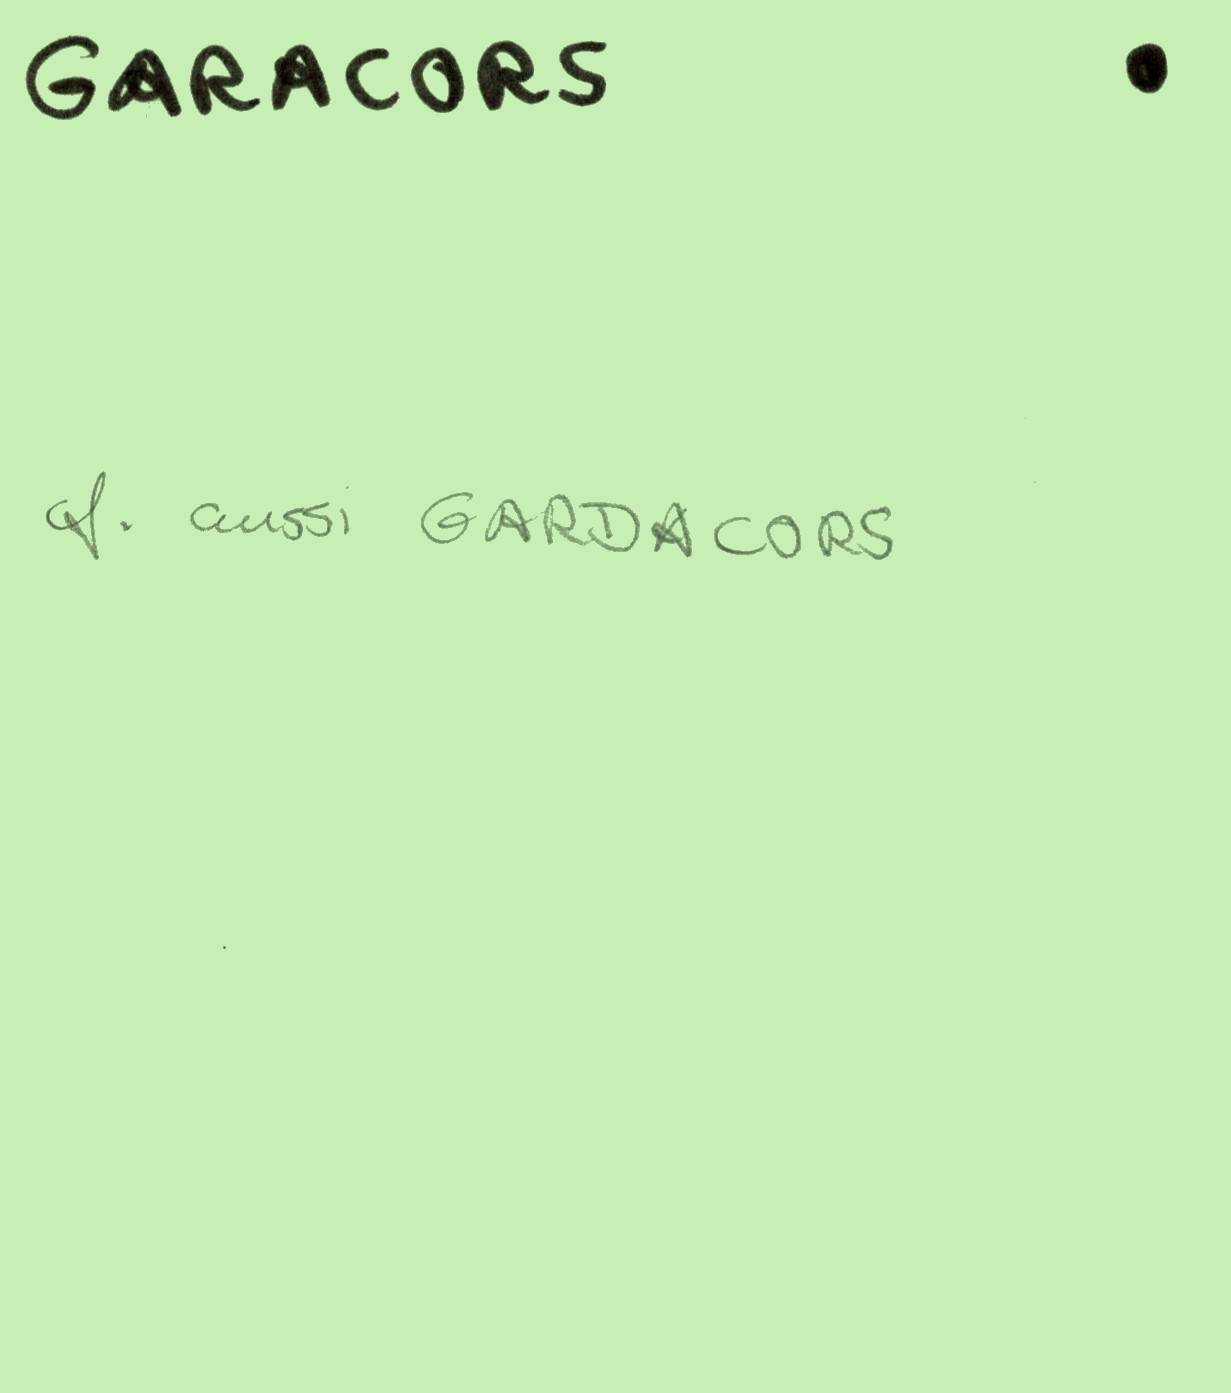 GARACORS •
cf. aussi GARDACORS